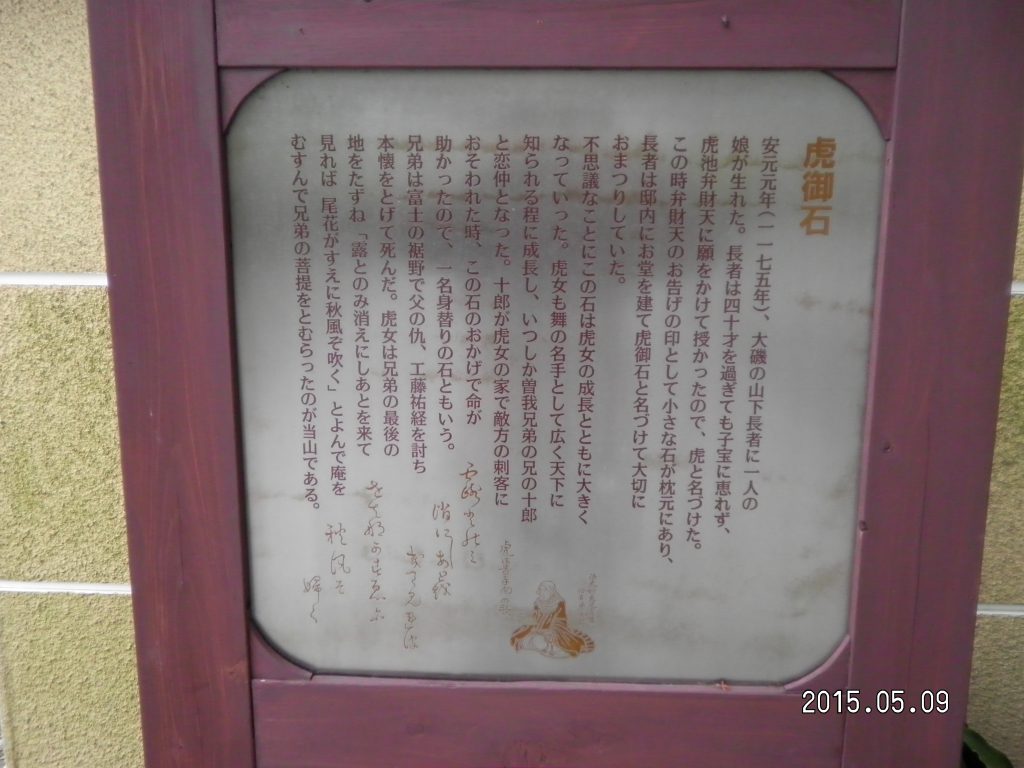 虎御石
安元元年(一一七五年)、大磯の山下長者に一人の
娘が生れた。長者は四十才を過ぎても子宝に恵れず、
虎池弁財天に願をかけて授かったので、虎と名づけた。
この時弁財天のお告げの印として小さな石が枕元にあり、
長者は邸内にお堂を建て虎御石と名づけて大切に
おまつりしていた。
不思議なことにこの石は虎女の成長とともに大きく
なっていった。虎女も舞の名手として広く天下に
知られる程に成長し、いつしか曽我兄弟の兄の十郎
と恋仲となった。十郎が虎女の家で敵方の刺客に
おそわれた時、この石のおかげで命が
助かったので、一名身替りの石ともいう。
兄弟は富士の裾野で父の仇、工藤祐経を討ち
本懐をとげて死んだ。虎女は兄弟の最後の
地をたずね「露とのみ消えにしあとを来て
見れば 尾花がすえに秋風ぞ吹く」とよんで庵を
むすんで兄弟の菩提をとむらったのが当山である。
2015.05.09